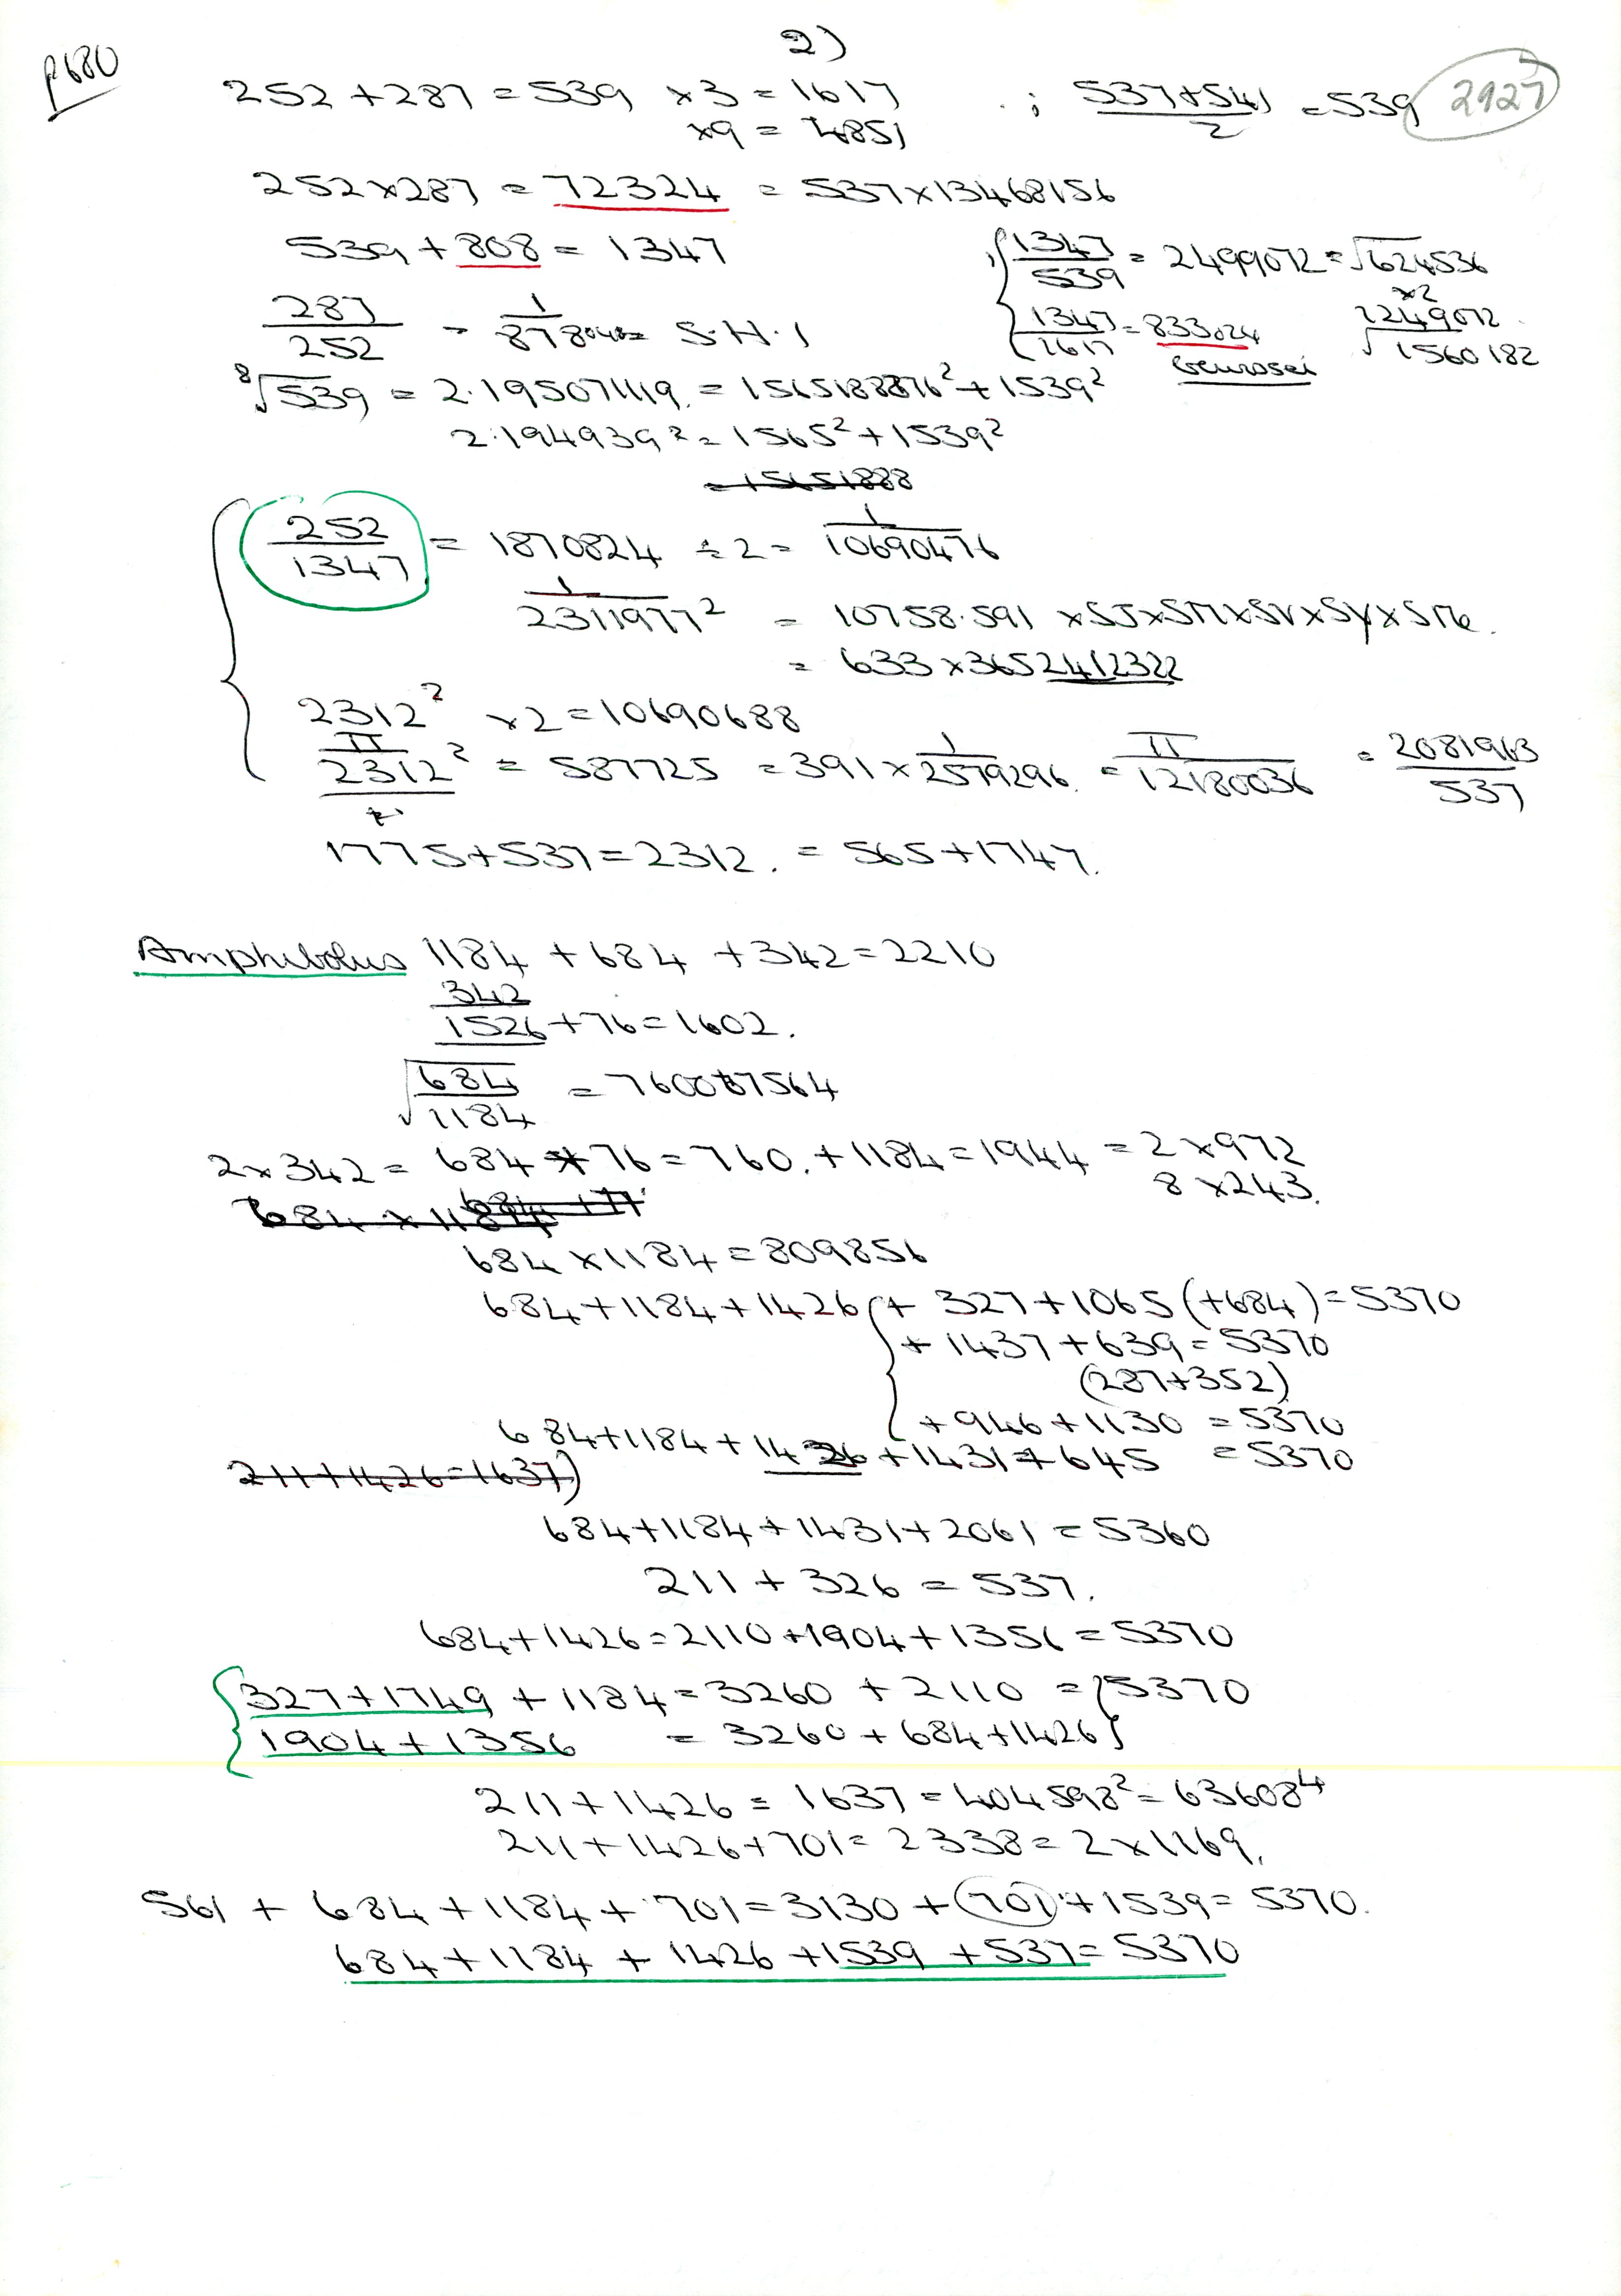 2)
P680
252 + 287 = 539 x3 = 1617 ; (537+541)/2 = 539 2927
x9 = 4851
252 x 287 = 72324 = 537 x 13468156
539 + 808 = 1347
1347/539 = 2499072 = √624536
x2
287/252 = 1/878048 = S.H.1
1347/1617 = 833024
√1/1560182
⁸√539 = 2.19507119. = 1565188876² + 1539²
2.194939² = 1565² + 1539²
= 15651888
252/1347 = 1870824 ÷ 2 = 1/10690476
1/2311977² = 10758.591
= 633 x 3652412322
2312² x 2 = 10690688
π/2312² = 587725 = 391 x 1/2579296 = π/12180036 = 2081963/537
1775 + 537 = 2312. = 565 + 1747.
Amphibolus 1184 + 684 + 342 = 2210
342
1526 + 76 = 1602.
√684/1184 = 760067564
2 x 342 = 684 + 76 = 760. + 1184 = 1944 = 2 x 972
8 x 243.
684 x 1184 = 809856
684 + 1184 + 1426 { + 327 + 1065 (+684) = 5370
+ 1437 + 639 = 5370
(287+352)
+ 946 + 1130 = 5370
684 + 1184 + 1426 + 1431 + 645 = 5370
211 + 1426 = 1637)
684 + 1184 + 1431 + 2061 = 5360
211 + 326 = 537.
684 + 1426 = 2110 + 1904 + 1356 = 5370
{ 327 + 1749 + 1184 = 3260 + 2110 = } 5370
1904 + 1356 = 3260 + 684 + 1426 }
211 + 1426 = 1637 = 404598² = 63608⁴
211 + 1426 + 701 = 2338 = 2 x 1169.
561 + 684 + 1184 + 701 = 3130 + (701) + 1539 = 5370.
684 + 1184 + 1426 + 1539 + 537 = 5370